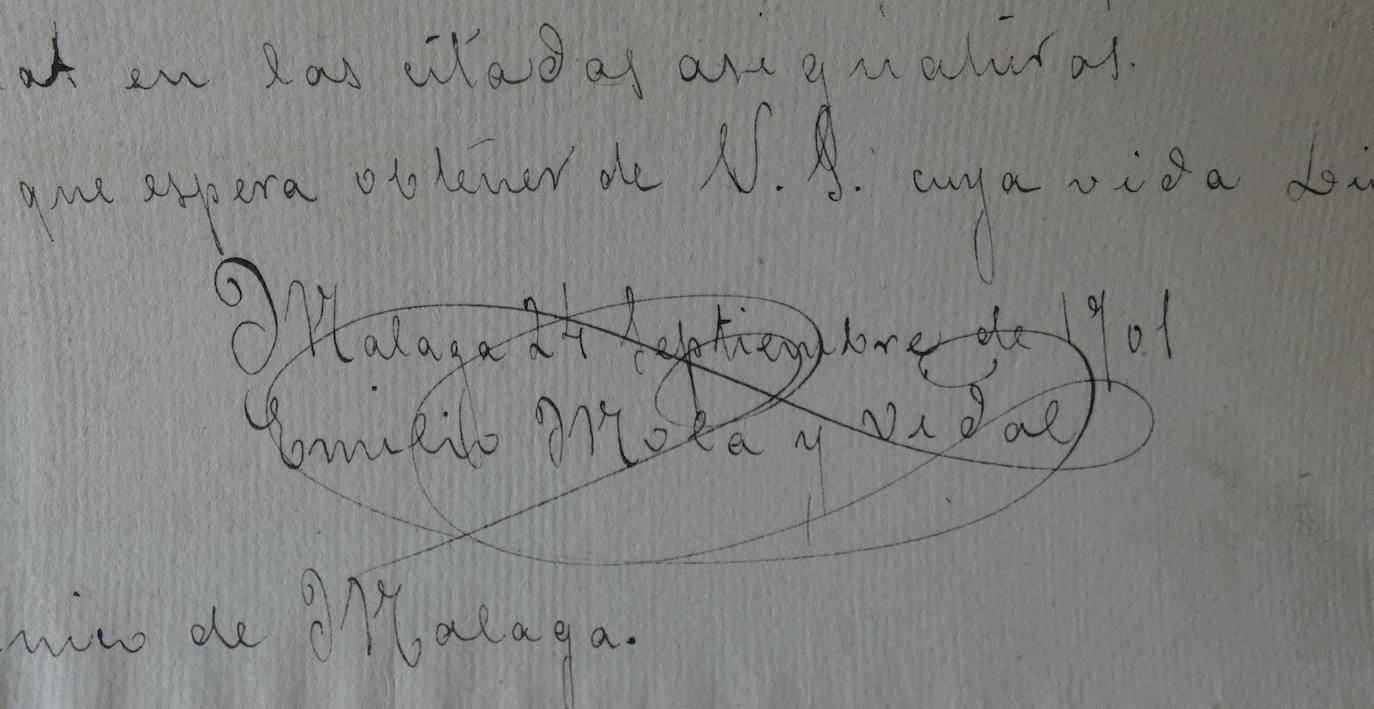 en las citadas asignaturas.
que espera obtener de V. S. cuya vida
Malaga 24 Septiembre de 1901
Emilio Mola y Vidal
de Malaga.